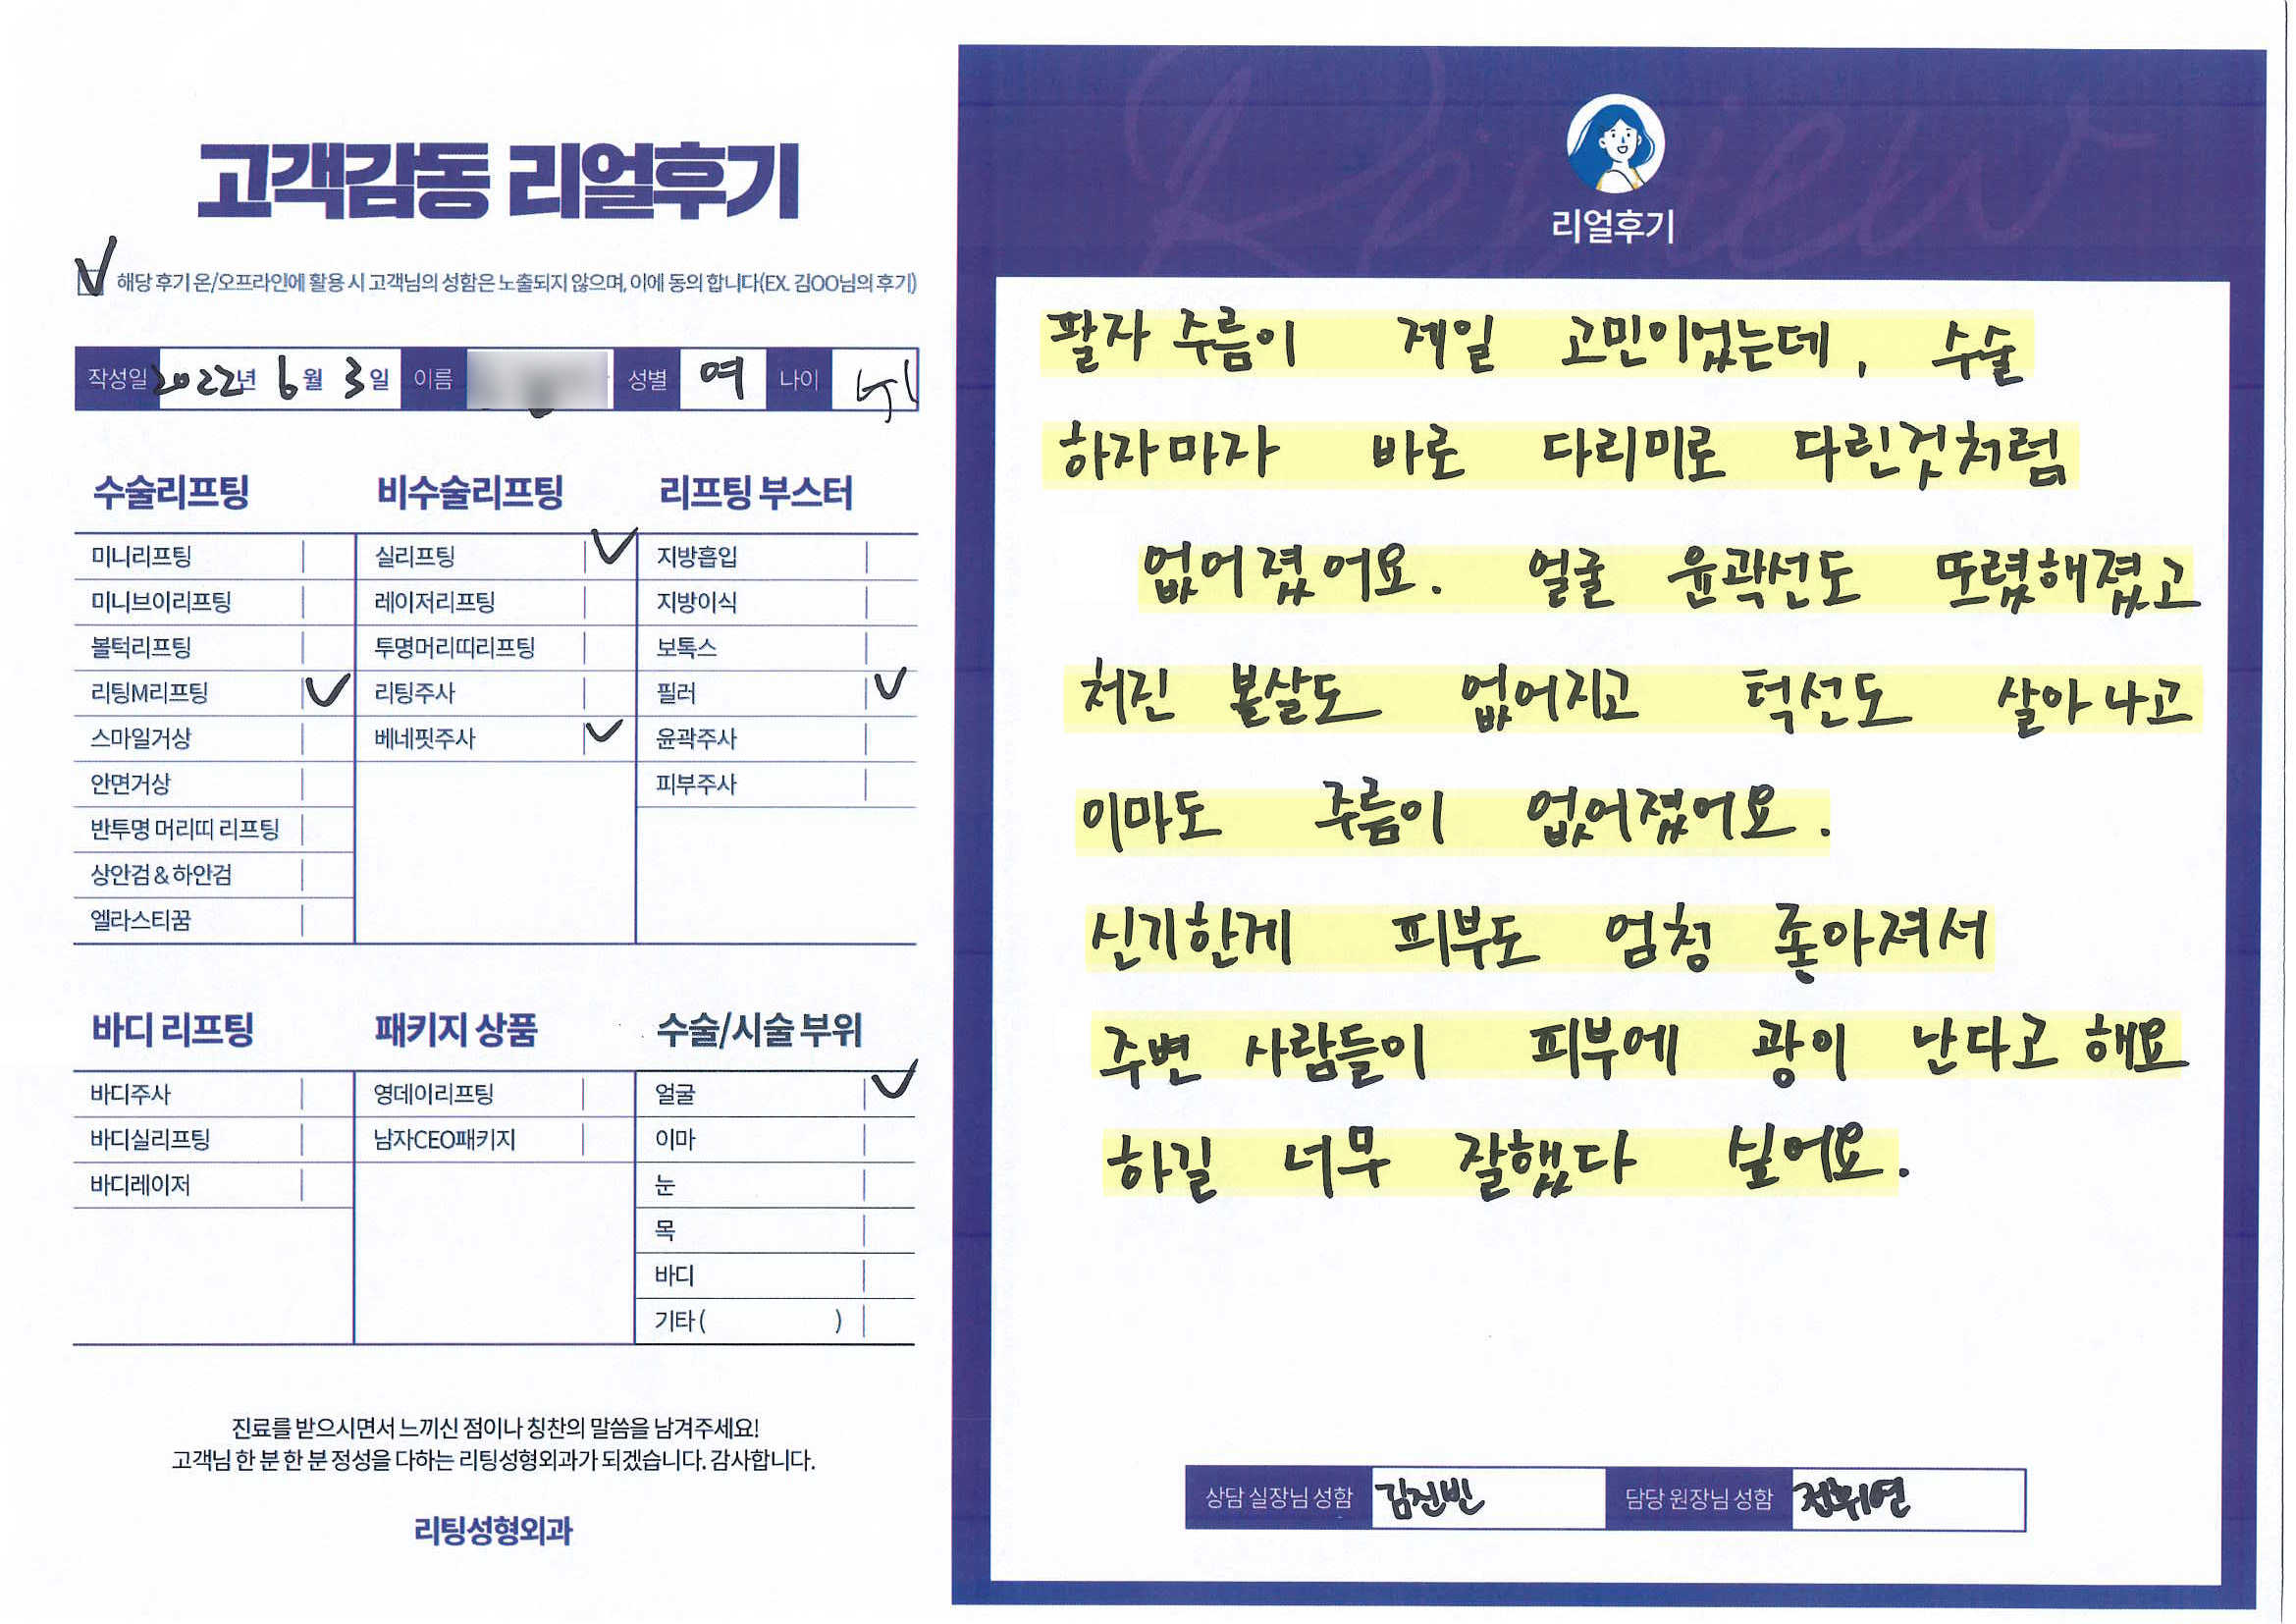 고객감동 리얼후기
해당 후기 온/오프라인에 활용 시 고객님의 성함은 노출되지 않으며, 이에 동의 합니다(EX. 김OO님의 후기)
작성일 2022년 6월 3일 이름 성별 여 나이
수술리프팅
미니리프팅
미니브이리프팅
볼턱리프팅
리팅M리프팅
스마일거상
안면거상
반투명 머리띠 리프팅
상안검 & 하안검
엘라스티꿈
비수술리프팅
실리프팅
레이저리프팅
투명머리띠리프팅
리팅주사
베네핏주사
리프팅 부스터
지방흡입
지방이식
보톡스
필러
윤곽주사
피부주사
바디 리프팅
바디주사
바디실리프팅
바디레이저
패키지 상품
영데이리프팅
남자CEO패키지
수술/시술 부위
얼굴
이마
눈
목
바디
기타 ( )
진료를 받으시면서 느끼신 점이나 칭찬의 말씀을 남겨주세요!
고객님 한 분 한 분 정성을 다하는 리팅성형외과가 되겠습니다. 감사합니다.
리팅성형외과
Review
리얼후기
팔자 주름이 제일 고민이었는데, 수술
하자마자 바로 다리미로 다린것처럼
없어졌어요. 얼굴 윤곽선도 뚜렸해졌고
처진 볼살도 없어지고 턱선도 살아나고
이마도 주름이 없어졌어요.
신기한게 피부도 엄청 좋아져서
주변 사람들이 피부에 광이 난다고 해요
하길 너무 잘했다 싶어요.
상담 실장님 성함 김진빈 담당 원장님 성함